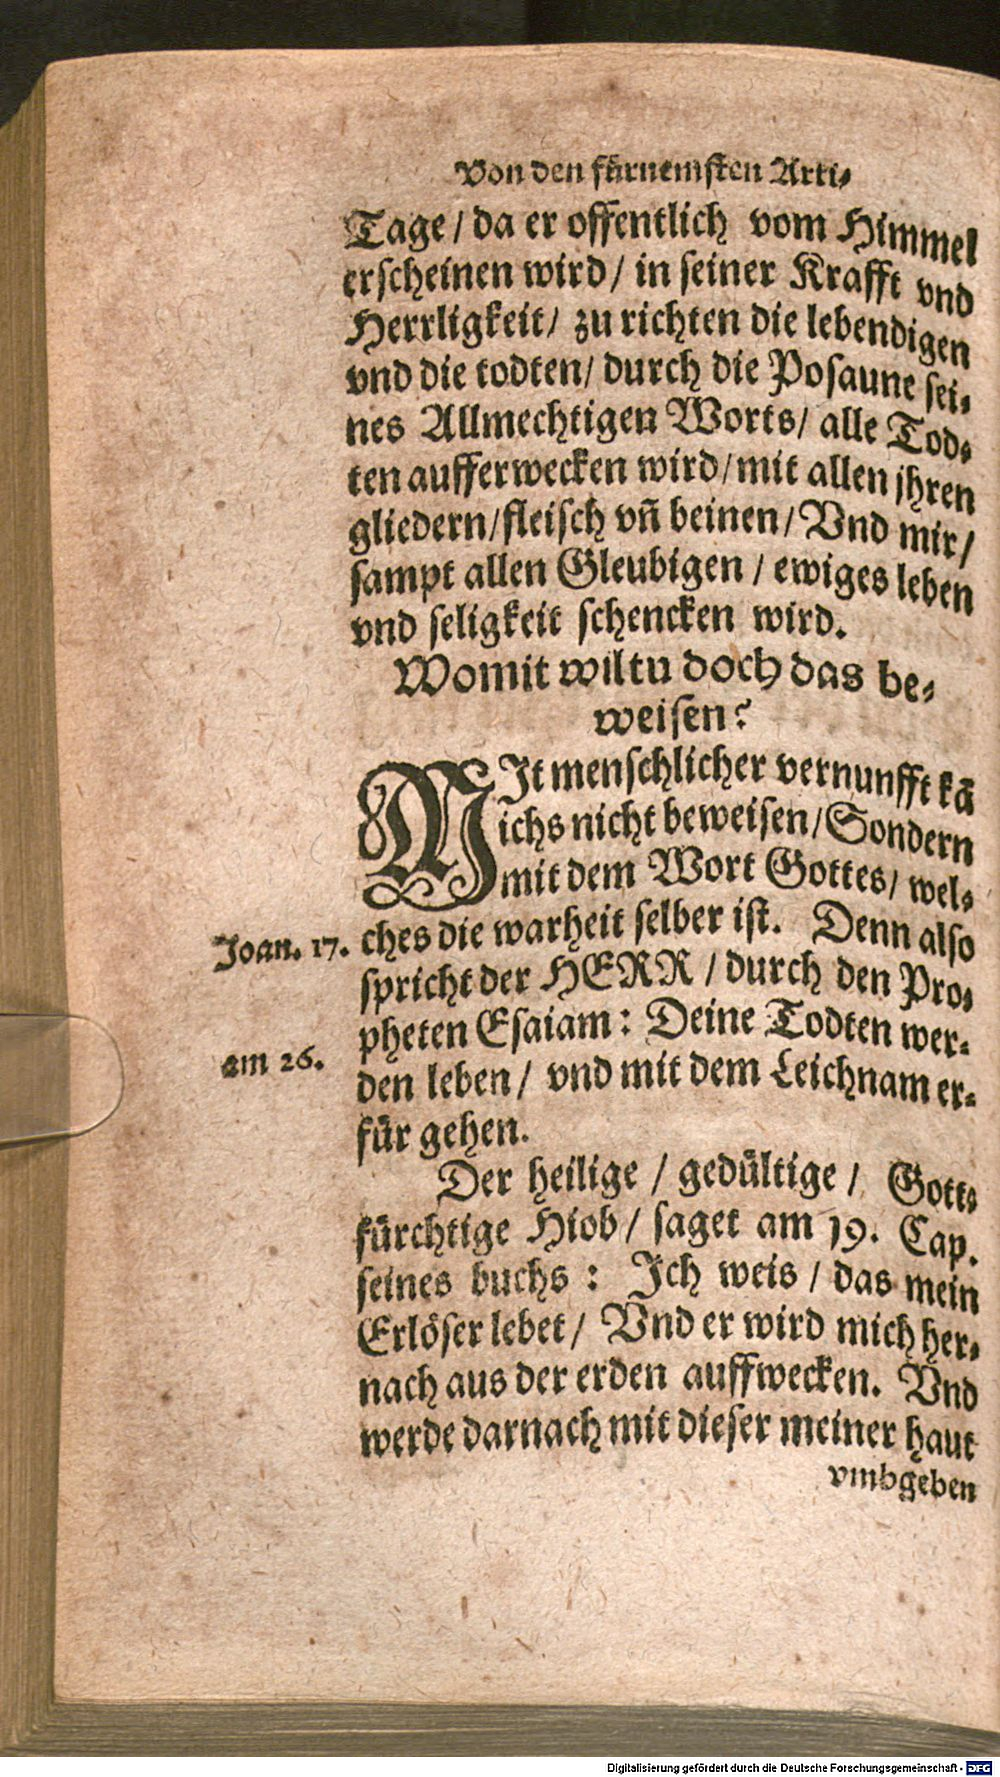 Von den fürnemsten Arti-
Tage / da er offentlich vom Himmel
erscheinen wird / in seiner Krafft vnd
Herrligkeit / zu richten die lebendigen
vnd die todten / durch die Posaune sei-
nes Allmechtigen Worts / alle Tod-
ten aufferwecken wird / mit allen jhren
gliedern / fleisch vñ beinen / Vnd mir /
sampt allen Gleubigen / ewiges leben
vnd seligkeit schencken wird.
Womit wiltu doch das be-
weisen?
MIt menschlicher vernunfft kā
ichs nicht beweisen / Sondern
mit dem Wort Gottes / wel-
Joan. 17. ches die warheit selber ist. Denn also
spricht der HERR / durch den Pro-
pheten Esaiam: Deine Todten wer-
am 26. den leben / vnd mit dem Leichnam er-
für gehen.
Der heilige / gedültige / Gott-
fürchtige Hiob / saget am 19. Cap.
seines buchs : Ich weis / das mein
Erlöser lebet / Vnd er wird mich her-
nach aus der erden auffwecken. Vnd
werde darnach mit dieser meiner haut
vmbgeben
Digitalisierung gefördert durch die Deutsche Forschungsgemeinschaft - DFG